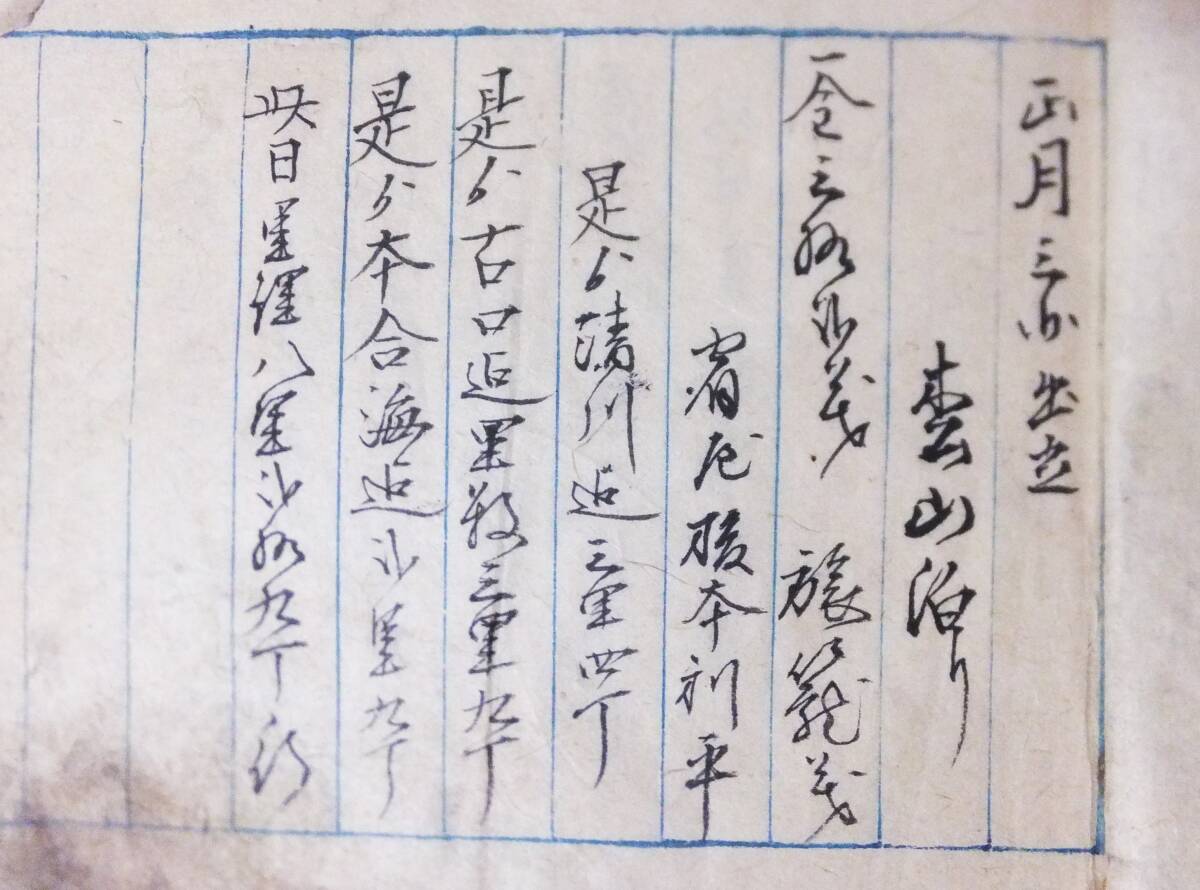 正月三日出立
枩山泊り
一金三拾弐戋 旅籠戋
宿屋 本利平
是ゟ清川迠三里四丁
是ゟ古口迠里数三里九丁
是ゟ本合海迠弐里九丁
此日里程八里弐拾九丁行